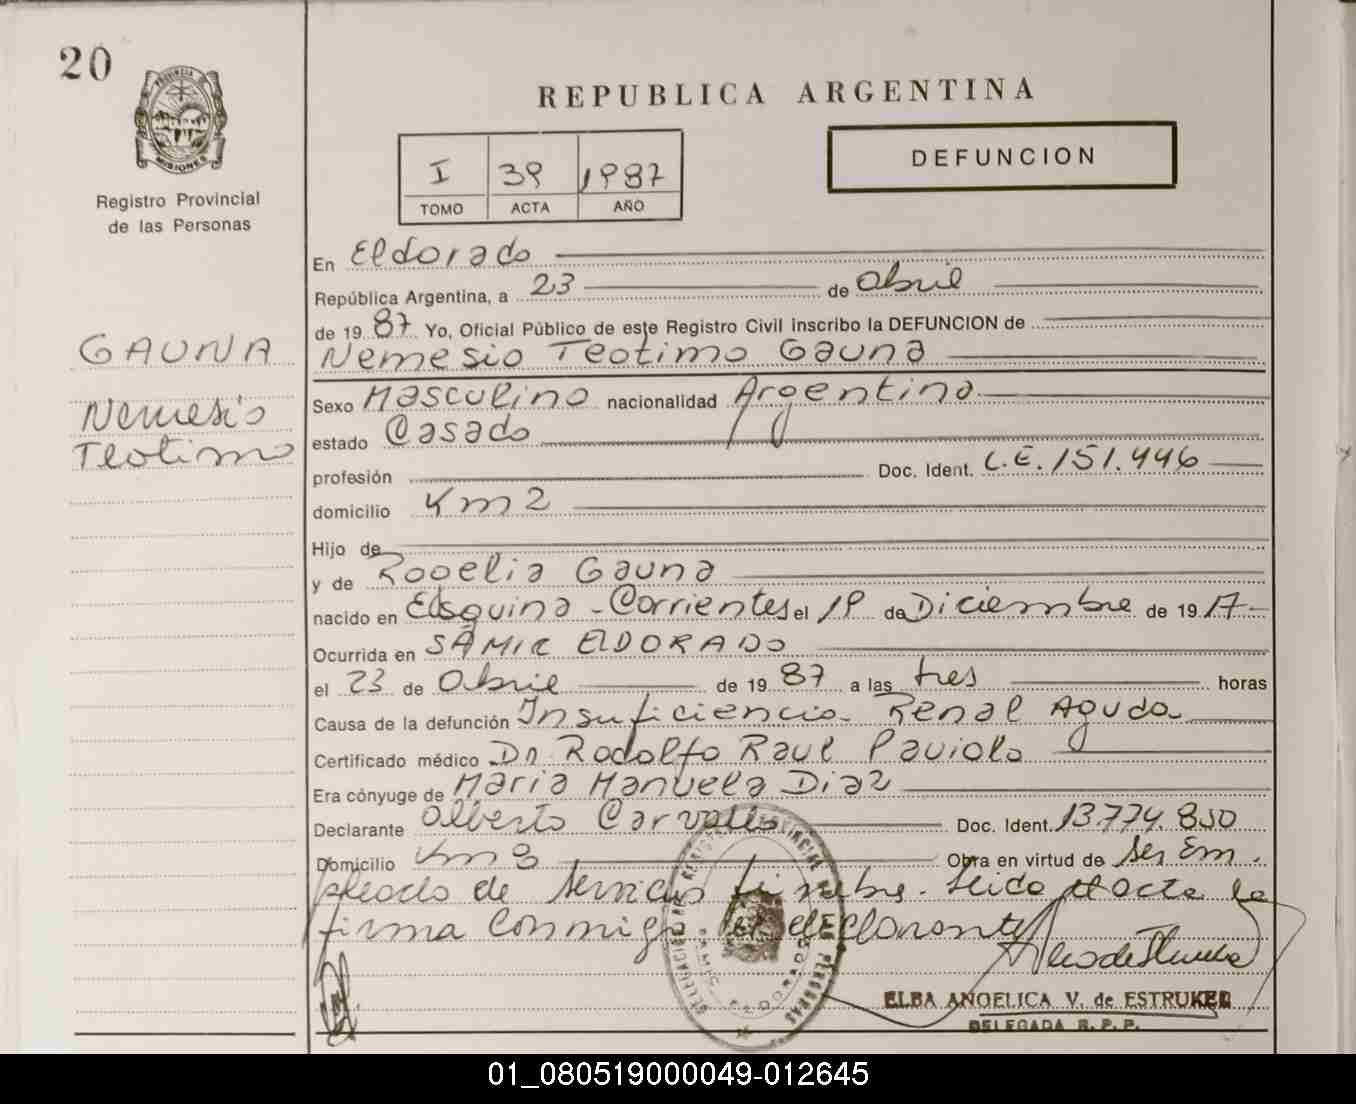 20
PROVINCIA DE
MISIONES
Registro Provincial
de las Personas
GAUNA
Nemesio
Teotimo
REPUBLICA ARGENTINA
I 39 1987
TOMO ACTA AÑO
DEFUNCION
En Eldorado
República Argentina, a 23 de Abril
de 1987 Yo, Oficial Público de este Registro Civil inscribo la DEFUNCION de
Nemesio Teotimo Gauna
Sexo Masculino nacionalidad Argentina
estado Casado
profesión Doc. Ident. L.E. 151.446
domicilio Km 2
Hijo de
y de Rogelia Gauna
nacido en Esquina - Corrientes el 19 de Diciembre de 1917
Ocurrida en SAMIC ELDORADO
el 23 de Abril de 1987 a las tres horas
Causa de la defunción Insuficiencia Renal Aguda
Certificado médico Dr. Rodolfo Raul Paviolo
Era cónyuge de Maria Manuela Diaz
Declarante Alberto Carvallo Doc. Ident. 13.774.850
Domicilio Km 8 Obra en virtud de ser Em
pleado de servicios funebre. Leida el acta la
firma conmigo el declarante
ELBA ANGELICA V. de ESTRUKEL
DELEGADA R. P. P.
01_080519000049-012645